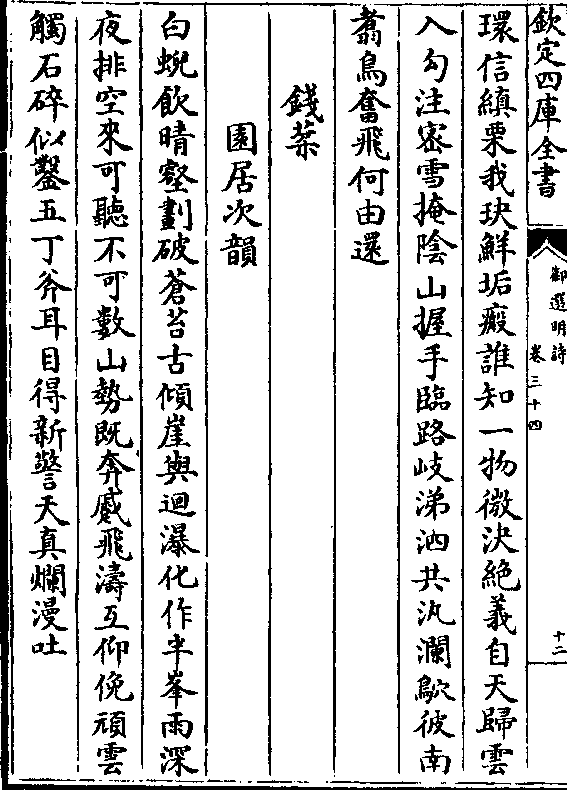 欽定四庫全書
御選明詩
卷三十四
十二
環信縝栗我玦鮮垢瘢誰知一物微決絶義自天歸雲
入勾注密雪掩陰山握手臨路歧涕泗共汍瀾歘彼南
翥鳥奮飛何由還
錢葉
園居次韻
白蜺飲晴壑劃破蒼苔古傾崖與迴瀑化作半峯雨深
夜排空來可聽不可數山勢既奔蹙飛濤互仰俛頑雲
觸石碎似鑿五丁斧耳目得新警天真爛漫吐